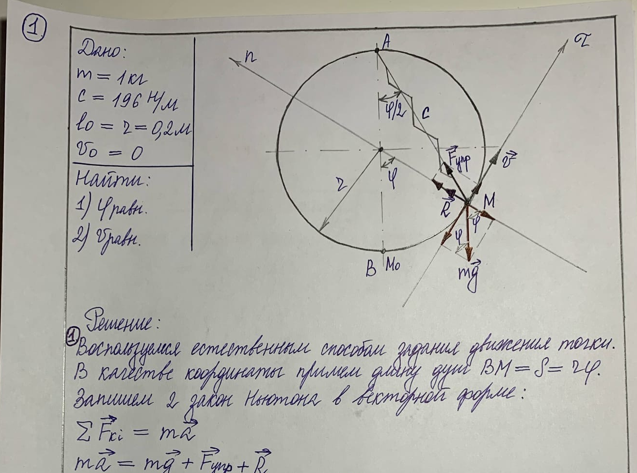 1
Дано:
m = 1кг
c = 196 Н/м
l₀ = r = 0,2м
v₀ = 0
Найти:
1) φравн.
2) vравн.
n
A
τ
φ/2
c
F⃗упр
v⃗
r
φ
R⃗
M
φ
φ
B
M₀
mg⃗
Решение:
1
Воспользуемся естественным способом задания движения точки.
В качестве координаты примем длину дуги BM = S = rφ.
Запишем 2 закон Ньютона в векторной форме:
∑F⃗кi = ma⃗
ma⃗ = mg⃗ + F⃗упр + R⃗